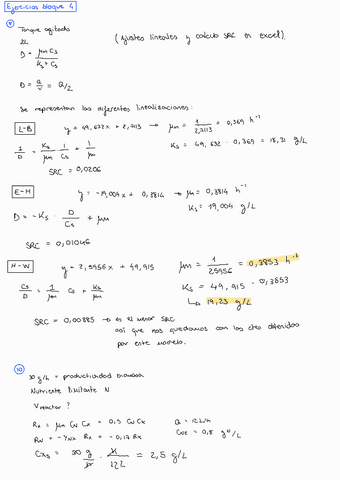 Ejercicios bloque 4
9
Tanque agitado
(ajustes lineales y calculo SRC en excel).
D = μm Cs / Ks + Cs
D = Q/V = Q/2
Se representan las diferentes linealizaciones:
L-B y = 49,632x + 2,7113 → μm = 1/2,7113 = 0,369 h⁻¹
1/D = Ks/μm · 1/Cs + 1/μm Ks = 49,632 · 0,369 = 18,31 g/L
SRC = 0,0206
E-H y = -19,004x + 0,3814 → μ = 0,3814 h⁻¹
D = -Ks · D/Cs + μm Ks = 19,004 g/L
SRC = 0,01046
H-W y = 2,5956x + 49,915 μm = 1/2,5956 = 0,3853 h⁻¹
Cs/D = 1/μm Cs + Ks/μm Ks = 49,915 · 0,3853
↳ 19,23 g/L
SRC = 0,00885 → es el menor SRC
así que nos quedamos con las ctes obtenidas
por este modelo.
10
30 g/h = productividad biomasa
Nutriente limitante N
V reactor ?
Rx = μm CN Cx = 0,5 CN Cx Q = 12 L/h
RN = -YN/x Rx = -0,17 Rx
Cxs = 30 g/h · h/12L = 2,5 g/L